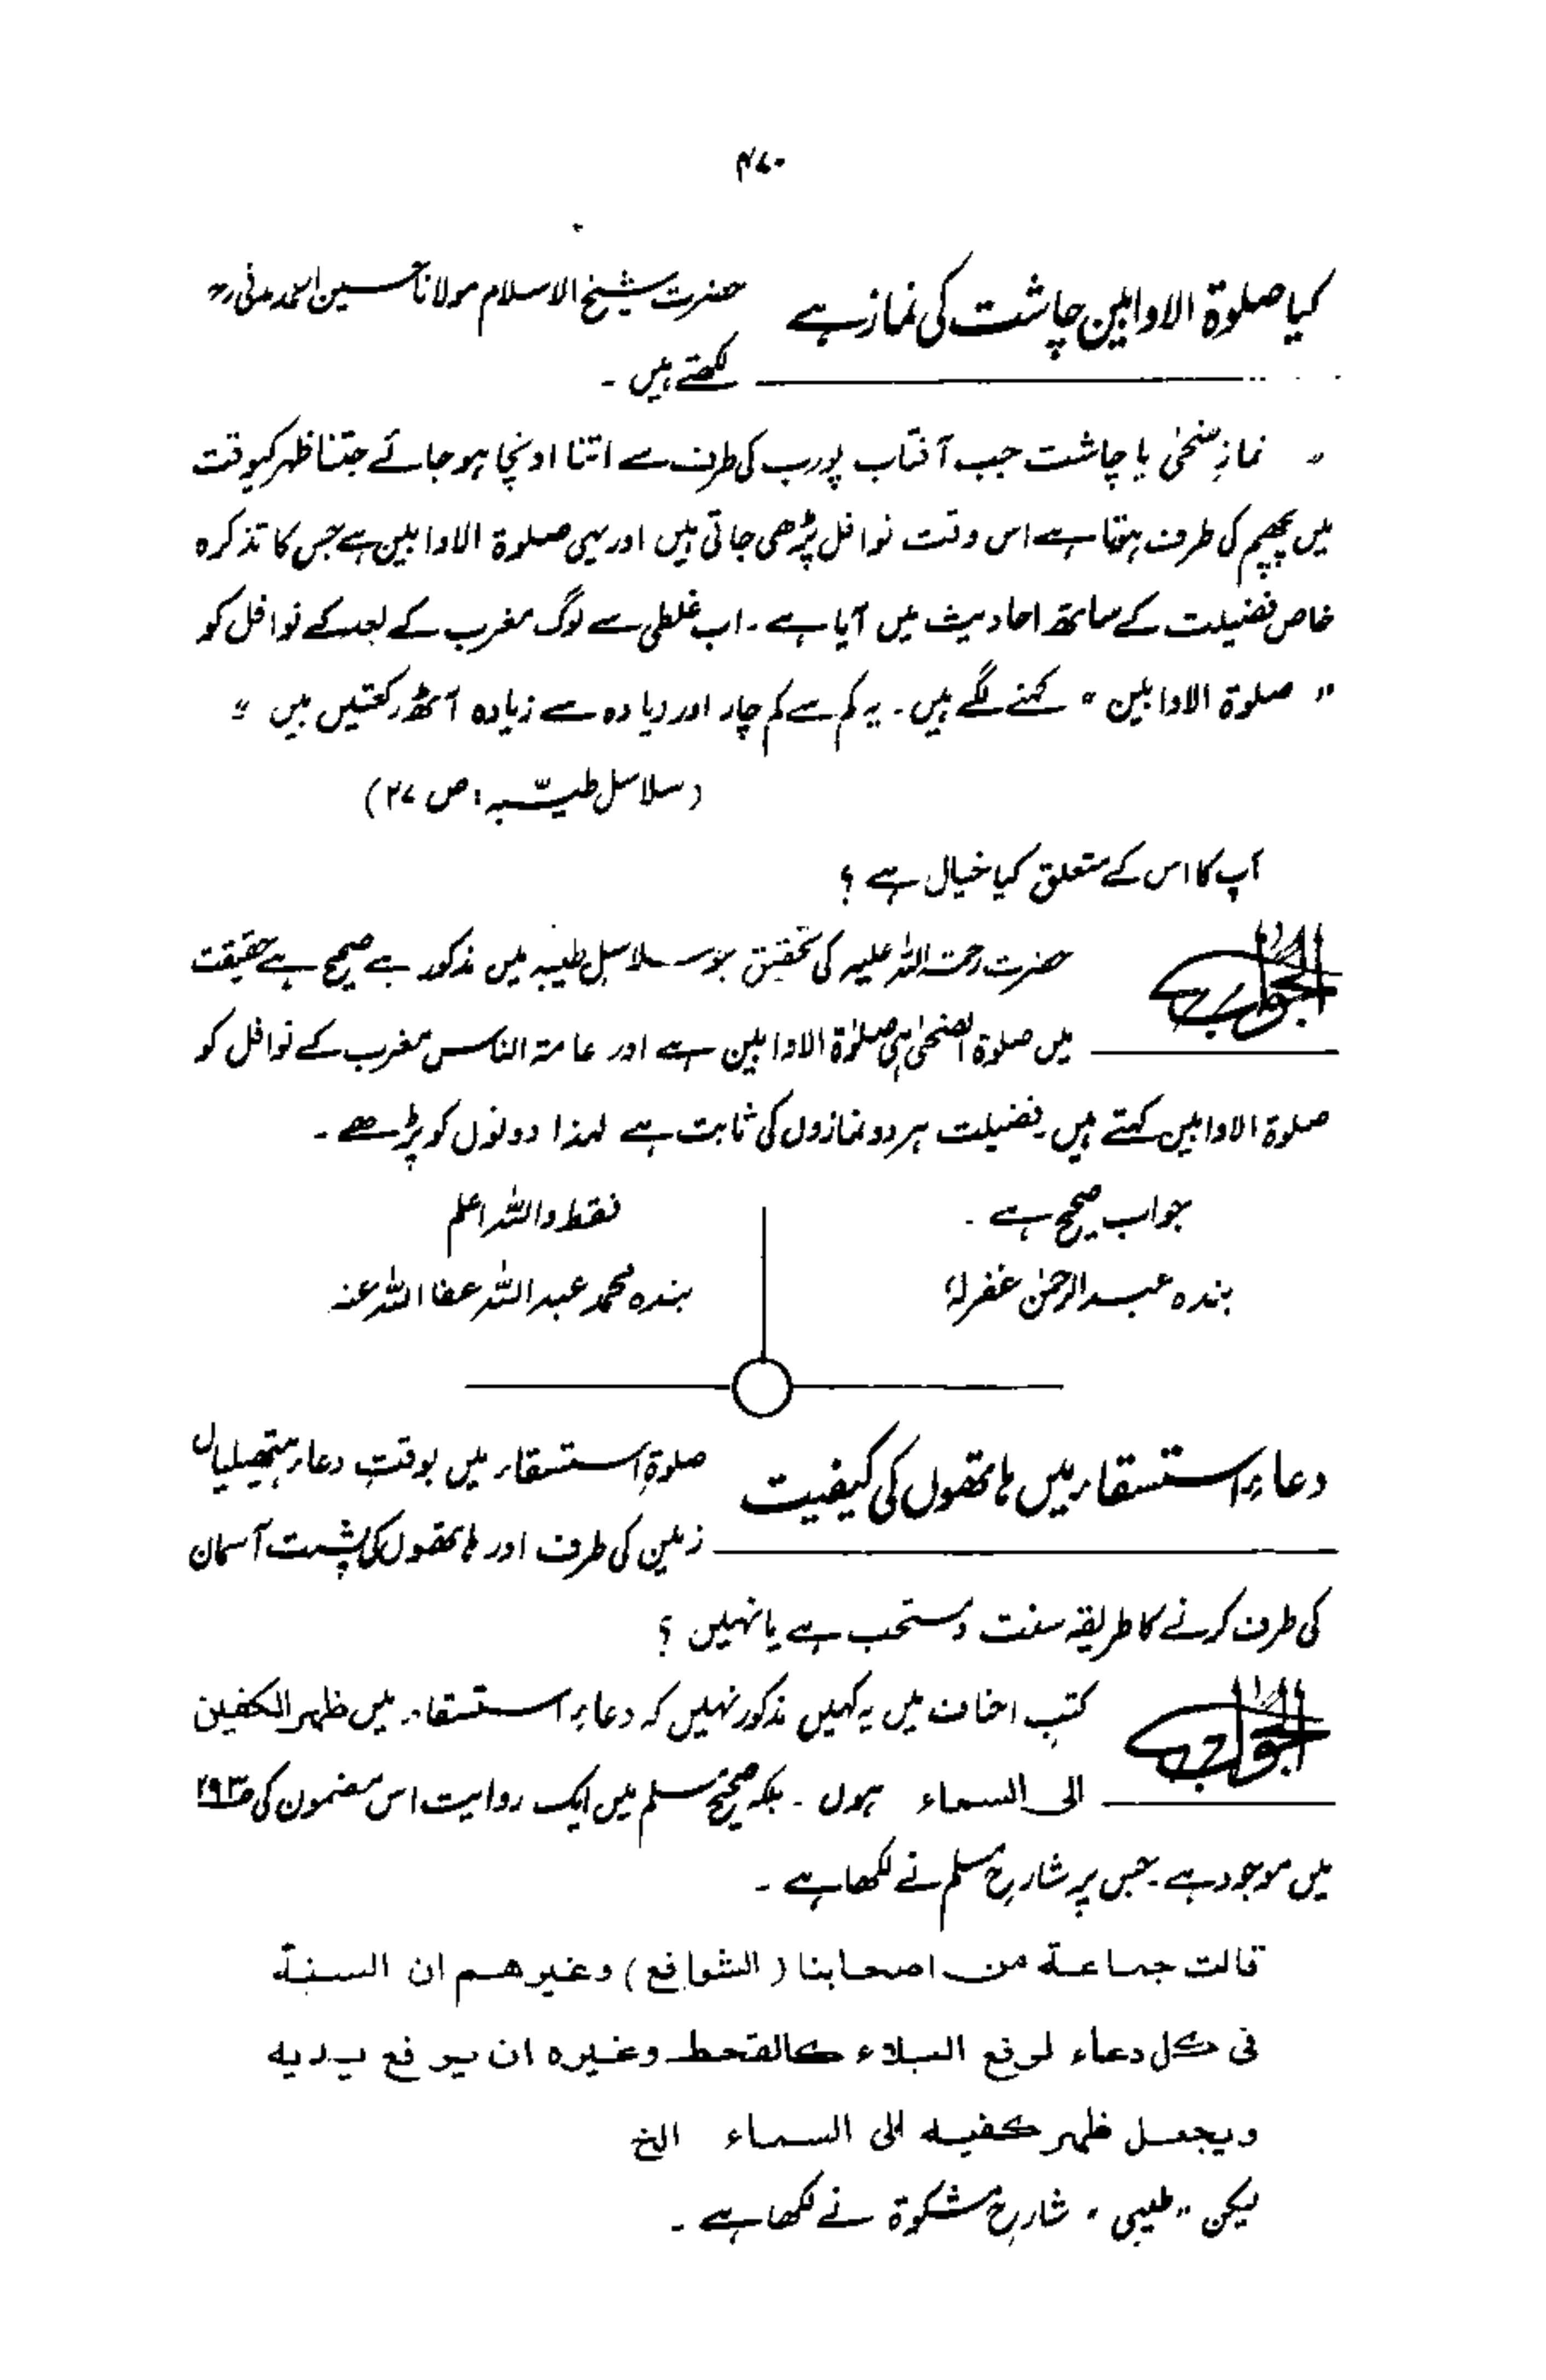 ۴۷۰
کیا صلوۃ الاوابین چاشت کی نماز ہے
حضرت شیخ الاسلام مولانا حسین احمد مدنی رح
لکھتے ہیں ۔
” نمازِ ضحیٰ یا چاشت جب آفتاب پورب کی طرف سے اتنا اونچا ہو جائے جتنا ظہر کیوقت
میں پچھم کی طرف ہوتا ہے اس وقت نوافل پڑھی جاتی ہیں اور یہی صلوۃ الاوابین ہے جس کا تذکرہ
خاص فضیلت کے ساتھ احادیث میں آیا ہے ۔ اب غلطی سے لوگ مغرب کے بعد کے نوافل کو
” صلوۃ الاوابین “ کہنے لگے ہیں ۔ یہ کم سے کم چار اور زیادہ سے زیادہ آٹھ رکعتیں ہیں “
(سلاسل طیّبہ: ص ۲۷)
آپ کا اس کے متعلق کیا خیال ہے ؟
الجواب
حضرت رحمۃ اللہ علیہ کی تحقیق جو سلاسل طیبہ میں مذکور ہے صحیح ہے حقیقت
میں صلوۃ الضحیٰ ہی صلوٰۃ الاوابین ہے اور عامۃ الناس مغرب کے نوافل کو
صلوۃ الاوابین کہتے ہیں۔ فضیلت ہر دو نمازوں کی ثابت ہے لہذا دونوں کو پڑھے ۔
جواب صحیح ہے ۔
بندہ عبدالرحمٰن غفرلہٗ
فقط واللہ اعلم
بندہ محمد عبداللہ عفا اللہ عنہ
دعاءِ استسقاء میں ہاتھوں کی کیفیت
صلوۃِ استسقاء میں بوقتِ دعاء ہتھیلیاں
زمین کی طرف اور ہاتھوں کی پشت آسمان
کی طرف کرنے کا طریقہ سنت و مستحب ہے یا نہیں ؟
الجواب
کتبِ احناف میں یہ کہیں مذکور نہیں کہ دعاءِ استسقاء میں ظہر الکفین
الی السماء ہوں ۔ بلکہ صحیح مسلم میں ایک روایت اس مضمون کی ص۲۹۳
میں موجود ہے ۔ جس پر شارحِ مسلم نے لکھا ہے ۔
قالت جماعة من اصحابنا (الشوافع) وغيرهم ان السنة
فی كل دعاء لرفع البلاء كالقحط وغيره ان يرفع يديه
ويجعل ظهر كفيه الی السماء الخ
لیکن ”طیبی“ شارحِ مشکوۃ نے لکھا ہے ۔